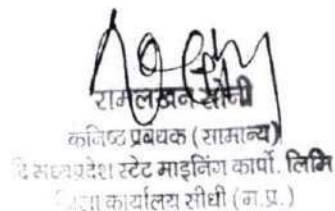 रामलखन सोनी
कनिष्ठ प्रबंधक (सामान्य)
दि मध्यप्रदेश स्टेट माइनिंग कार्पो. लिमि
जिला कार्यालय सीधी (म.प्र.)